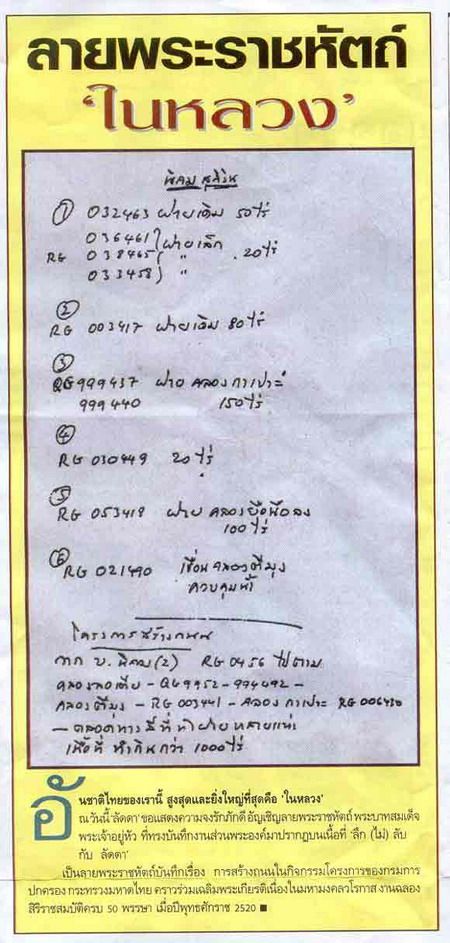 ลายพระราชหัตถ์
'ในหลวง'
นิคม สุคิริน
① 032463 ฝายเดิม 50 ไร่
036461 ฝายเล็ก
RG 038465 " 20 ไร่
033458 "
②
RG 003417 ฝายเดิม 80 ไร่
③
QG 999437 ฝาย คลองกาเปาะ
999440 150 ไร่
④
RG 030449 20 ไร่
⑤
RG 053418 ฝาย คลอง
100 ไร่
⑥
RG 021490 เขื่อนคลองตีมุง
ควบคุมน้ำ
โครงการสร้างถนน
จาก บ. นิคม (2) RG 0456 ไปตาม
QG 9952 - 994492 -
คลองตีมุง - RG 003441 - คลองกาเปาะ RG 006430
- ตลอดทางมีที่ทำฝายหลายแห่ง
เนื้อที่ทำกินกว่า 1000 ไร่
อันชาติไทยของเรานี้ สูงสุดและยิ่งใหญ่ที่สุดคือ 'ในหลวง'
ณ วันนี้ 'ลัดดา' ขอแสดงความจงรักภักดี อัญเชิญลายพระราชหัตถ์ พระบาทสมเด็จ
พระเจ้าอยู่หัว ที่ทรงบันทึกงานส่วนพระองค์มาปรากฏบนเนื้อที่ 'ลึก (ไม่) ลับ
กับ ลัดดา'
เป็นลายพระราชหัตถ์บันทึกเรื่อง การสร้างถนนในกิจกรรมโครงการของกรมการ
ปกครอง กระทรวงมหาดไทย คราวร่วมเฉลิมพระเกียรติเนื่องในมหามงคลวโรกาส งานฉลอง
สิริราชสมบัติครบ 50 พรรษา เมื่อปีพุทธศักราช 2520 ■